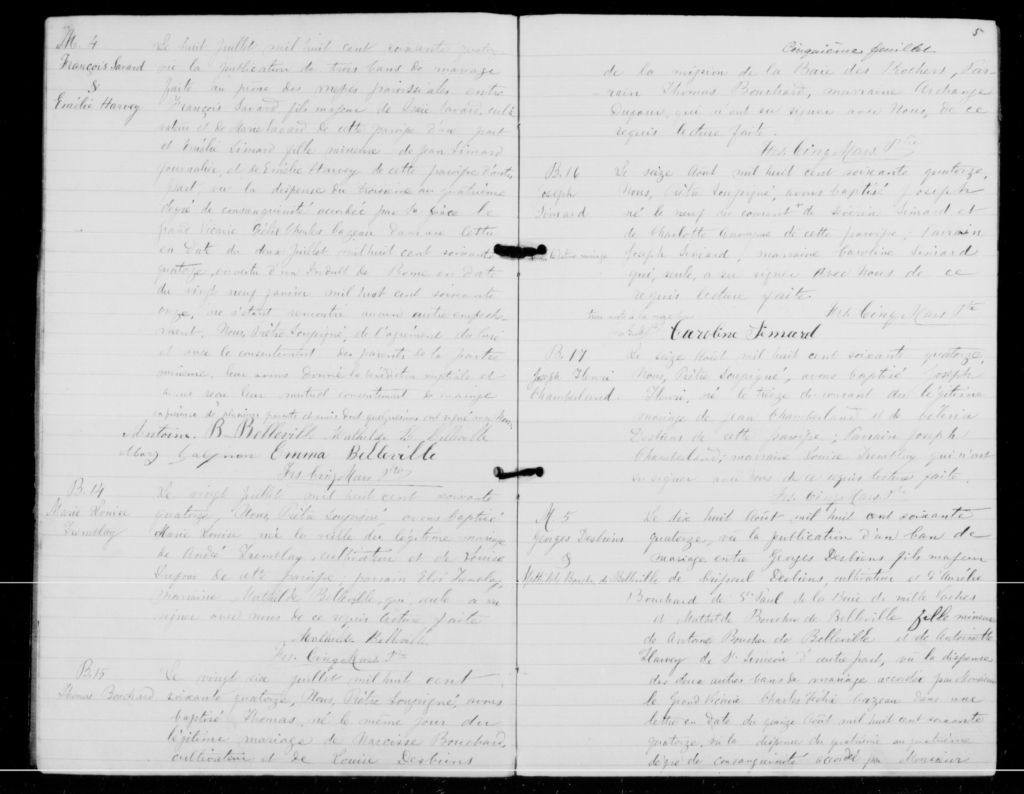 M. 4
François Savard
&
Emélie Harvey
Le huit juillet, mil huit cent soixante quatorze
vu la publication de trois bans de mariage
faite au prone des messes paroissiales entre
François Savard fils majeur de Savard, culti
vateur et de Marie Savard de cette paroisse d'une part
et Emélie Simard fille mineure de Jean Simard
journalier, et de Emélie Harvey de cette paroisse d'autre
part, vu la dispense du troisième au quatrième
degré de consanguinité accordée par Sa Grâce le
grand Vicaire Félix Charles Cazeau dans une lettre
en date du deux juillet mil huit cent soixante
quatorze, en vertu d'un Indult de Rome en date
du vingt neuf janvier mil huit cent soixante
onze, ne s'étant rencontré aucun autre empêche-
ment, Nous, Prêtre Soussigné, de l'agrément du Curé
et avec le consentement des parents de la partie
mineure, leur avons donné la bénédiction nuptiale et
avons reçu leur mutuel consentement de mariage
en présence de plusieurs parents et amis dont quelques uns ont signé avec Nous
Antoine. B. Belleville Mathilde B. Belleville
Mary Gagnon Emma Belleville
Frs. Cinq Mars Ptre
B. 14
Marie Louise
Tremblay
Le vingt juillet mil huit cent soixante
quatorze, Nous, Prêtre Soussigné, avons baptisé
Marie Louise, née la veille du légitime mariage
de André Tremblay cultivateur et de Louise
Dufour de cette paroisse; parrain Eloi Tremblay,
marraine Mathilde Belleville, qui, seule a su
signer avec nous de ce requis lecture faite
Mathilde Belleville
Frs. Cinq Mars Ptre
B. 15
Thomas Bouchard
Le vingt six juillet mil huit cent
soixante quatorze, Nous, Prêtre Soussigné, avons
baptisé Thomas, né le même jour du
légitime mariage de Narcisse Bouchard
cultivateur et de Louise Desbiens
5
Cinquième feuillet
de la mission de la Baie des Rochers, Par-
rain Thomas Bouchard, marraine Archange
Dufour, qui n'ont su signer avec Nous, de ce
requis lecture faite.
Frs. Cinq Mars Ptre
B. 16
Joseph
Simard
Le seize Août mil huit cent soixante quatorze,
Nous, Prêtre Soussigné, avons baptisé Joseph
né le neuf du courant de Simard et
de Charlotte de cette paroisse; Parrain
Joseph Simard, marraine Caroline Simard
qui, seule, a su signer avec Nous de ce
requis lecture faite.
Frs. Cinq Mars Ptre
Caroline Simard
B. 17
Joseph Henri
Chamberland
Le seize Août, mil huit cent soixante quatorze,
Nous, Prêtre Soussigné, avons baptisé Joseph
Henri, né le treize du courant du légitime
mariage de Jean Chamberland et de
Desbiens de cette paroisse; Parrain Joseph
Chamberland; marraine Louise Tremblay qui n'ont
su signer avec Nous de ce requis lecture faite.
Frs. Cinq Mars Ptre
M. 5
Georges Desbiens
&
Mathilde Boucher de Belleville
Le dix huit Août, mil huit cent soixante
quatorze, vu la publication d'un ban de
mariage entre Georges Desbiens fils majeur
de Desbiens, cultivateur et d'Aurélie
Bouchard de St Paul de la Baie de mille Vaches
et Mathilde Boucher de Belleville fille mineure
de Antoine Boucher de Belleville et de Antoinette
Harvey de St Siméon d'autre part, vu la dispense
des deux autres bans de mariage accordée par Monsieur
le Grand Vicaire Charles Félix Cazeau dans une
lettre en date du quinze Août mil huit cent soixante
quatorze, vu la dispense du quatrième au quatrième
degré de consanguinité accordé par Monsieur